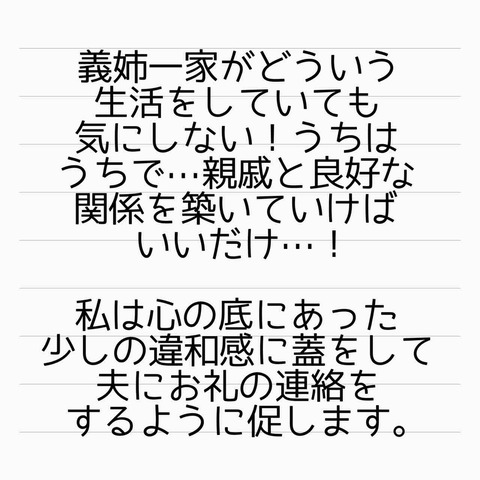 義姉一家がどういう
生活をしていても
気にしない！うちは
うちで…親戚と良好な
関係を築いていけば
いいだけ…！
私は心の底にあった
少しの違和感に蓋をして
夫にお礼の連絡を
するように促します。